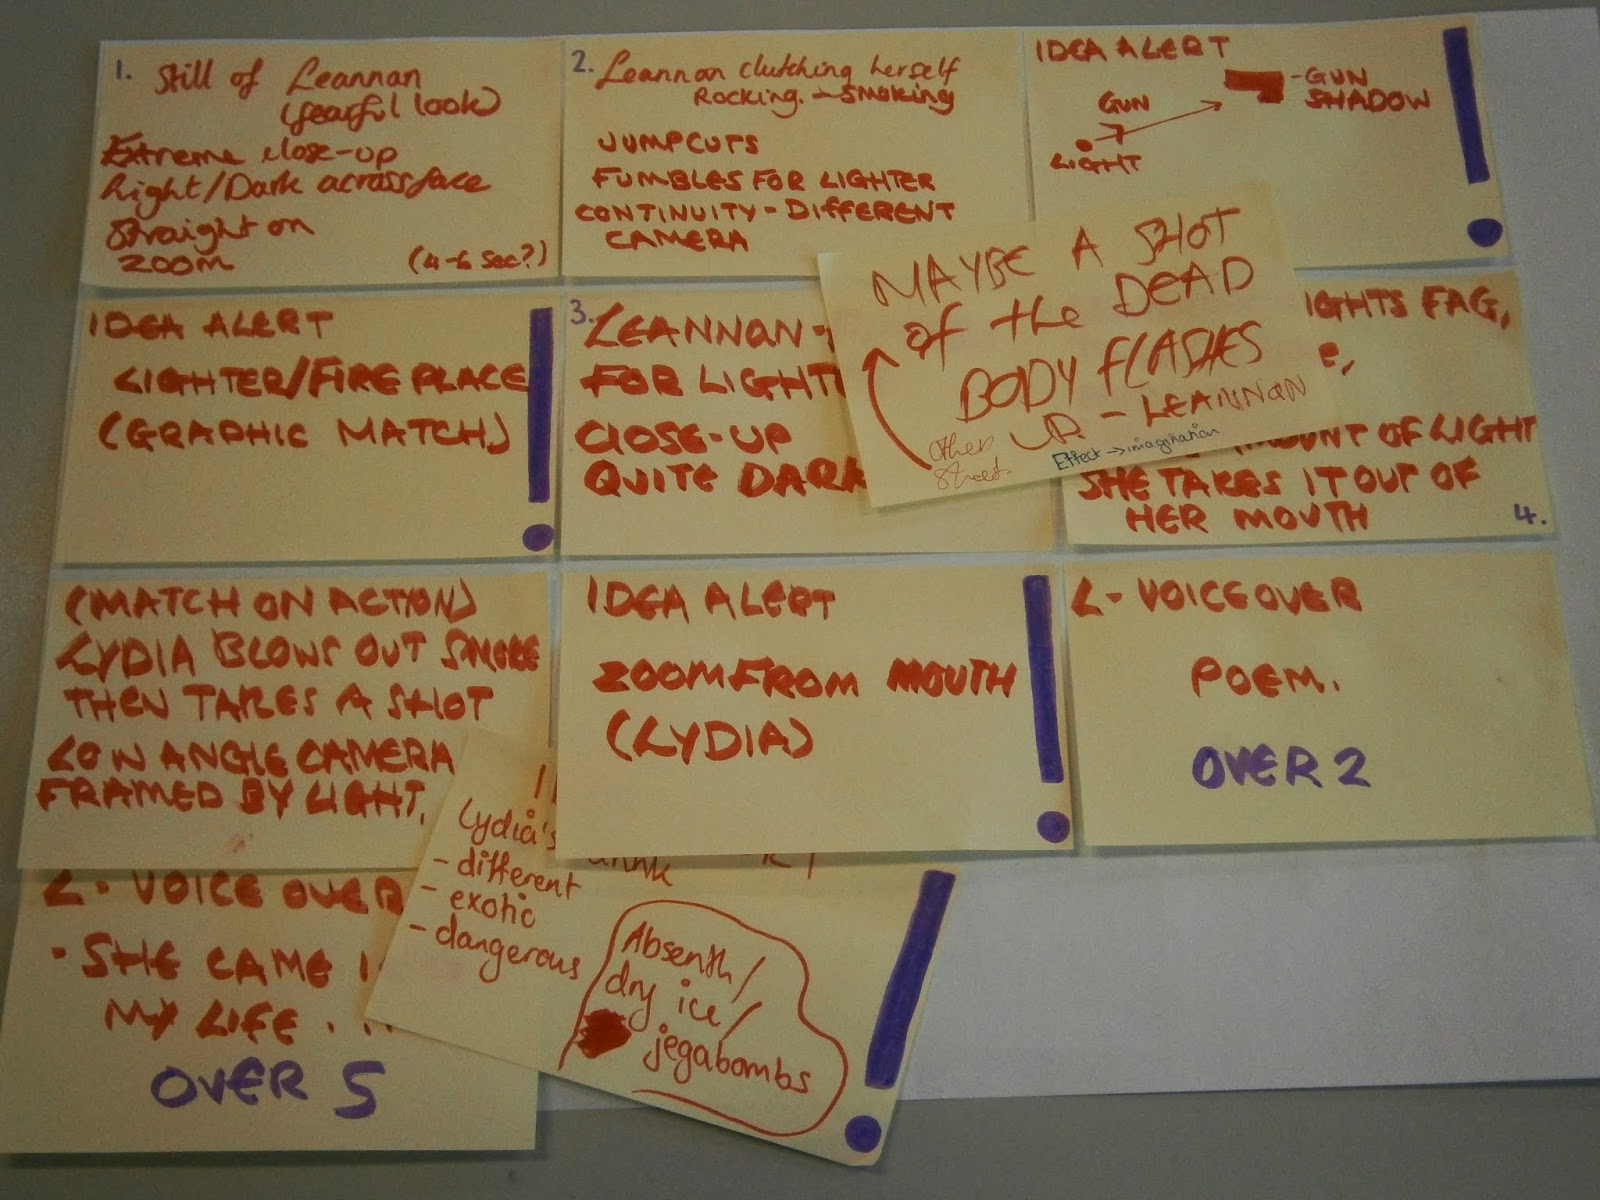 1. Still of Leannan
(fearful look)
Extreme close-up
Light/Dark across face
Straight on
zoom
(4-6 sec?)
2. Leannan clutching herself
Rocking. → smoking
JUMPCUTS
FUMBLES FOR LIGHTER
CONTINUITY - DIFFERENT
CAMERA
IDEA ALERT
GUN
LIGHT
- GUN
SHADOW
IDEA ALERT
LIGHTER/FIRE PLACE
(GRAPHIC MATCH)
3. LEANNAN -
FOR LIGHT
CLOSE-UP
QUITE DARK
MAYBE A SHOT
of the DEAD
BODY FLASHES
UP. - LEANNAN
other
street.
Effect → imagination
IGHTS FAG,
e,
OUNT OF LIGHT
SHE TAKES IT OUT OF
HER MOUTH
4.
(MATCH ON ACTION)
LYDIA BLOWS OUT SMOKE
THEN TAKES A SHOT
LOW ANGLE CAMERA
FRAMED BY LIGHT.
IDEA ALERT
ZOOM FROM MOUTH
(LYDIA)
L - VOICEOVER
POEM.
OVER 2
L - VOICE OVER
- SHE CAME I
MY LIFE.
OVER 5
Lydia's
drink
- different
- exotic
- dangerous
Absenth/
dry ice/
jegabombs